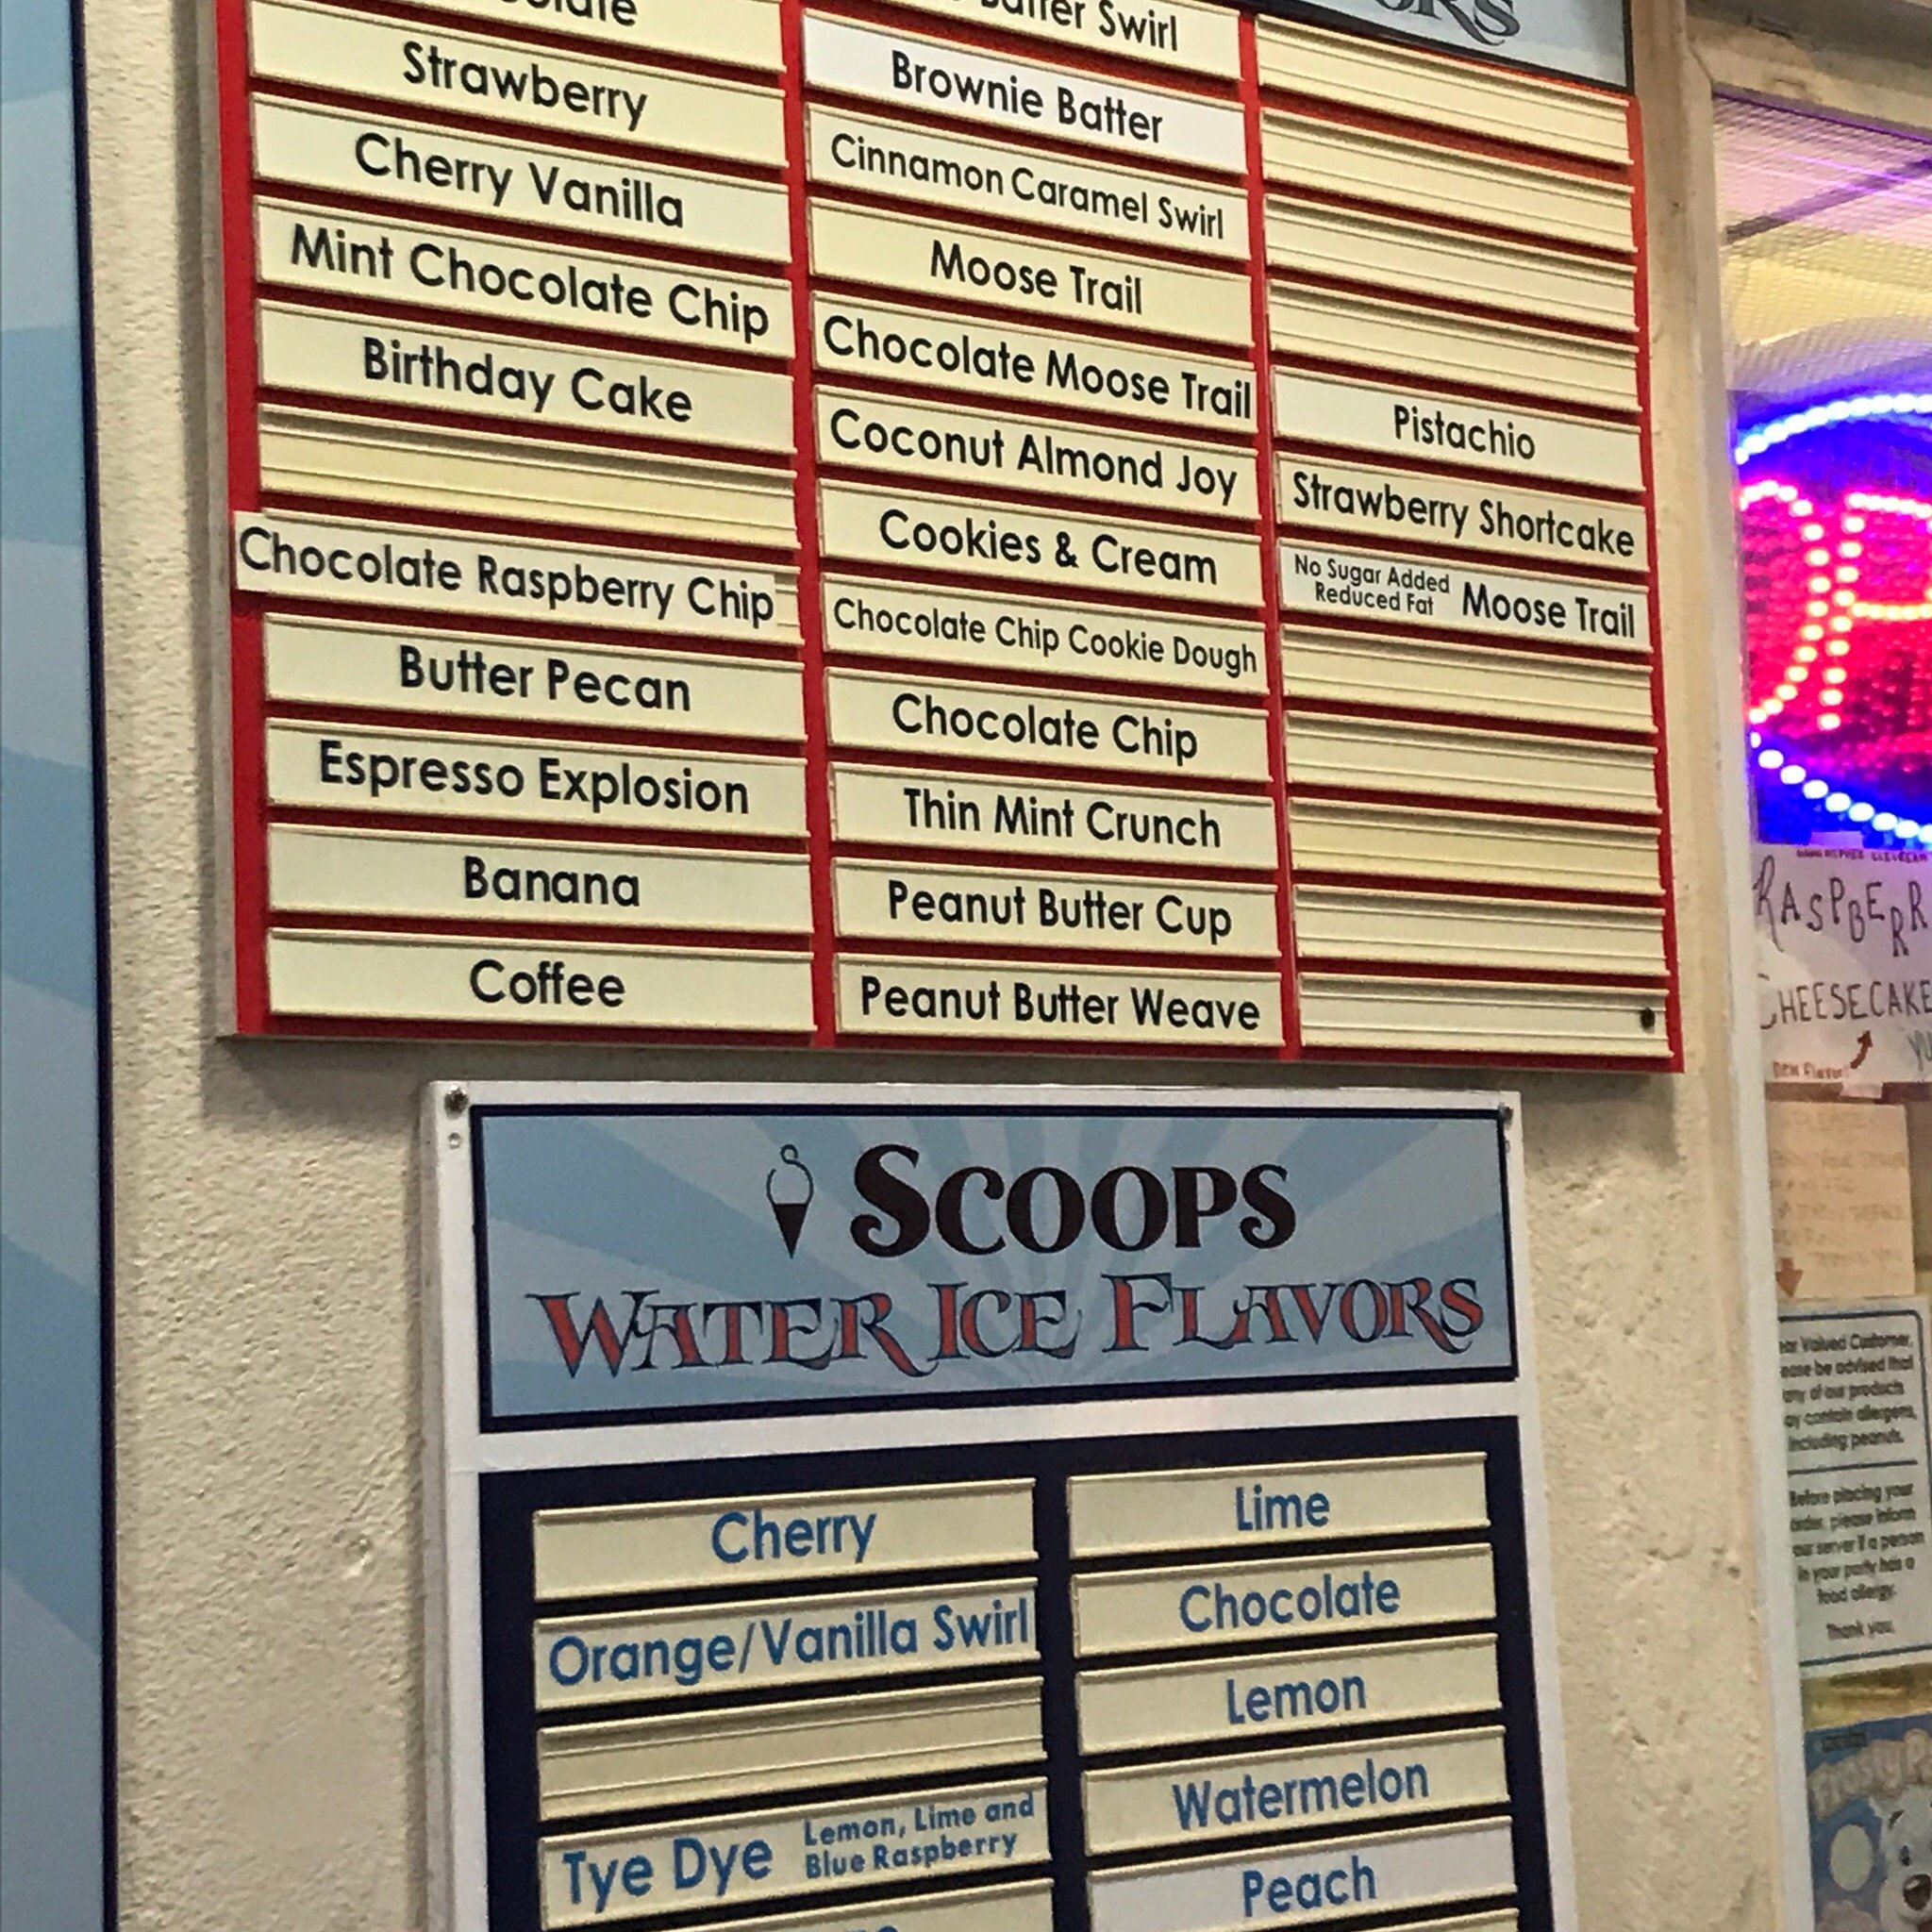 Swirl
Strawberry
Cherry Vanilla
Mint Chocolate Chip
Birthday Cake
Chocolate Raspberry Chip
Butter Pecan
Espresso Explosion
Banana
Coffee
Brownie Batter
Cinnamon Caramel Swirl
Moose Trail
Chocolate Moose Trail
Coconut Almond Joy
Cookies & Cream
Chocolate Chip Cookie Dough
Chocolate Chip
Thin Mint Crunch
Peanut Butter Cup
Peanut Butter Weave
Pistachio
Strawberry Shortcake
No Sugar Added
Reduced Fat Moose Trail
CHEESECAKE
New Flavor
SCOOPS
WATER ICE FLAVORS
Cherry
Orange/Vanilla Swirl
Tye Dye Lemon, Lime and
Blue Raspberry
Lime
Chocolate
Lemon
Watermelon
Peach
Valued Customer,
be advised that
any of our products
contain allergens,
including peanuts.
Before placing your
order, please inform
our server if a person
in your party has a
food allergy.
Thank you,